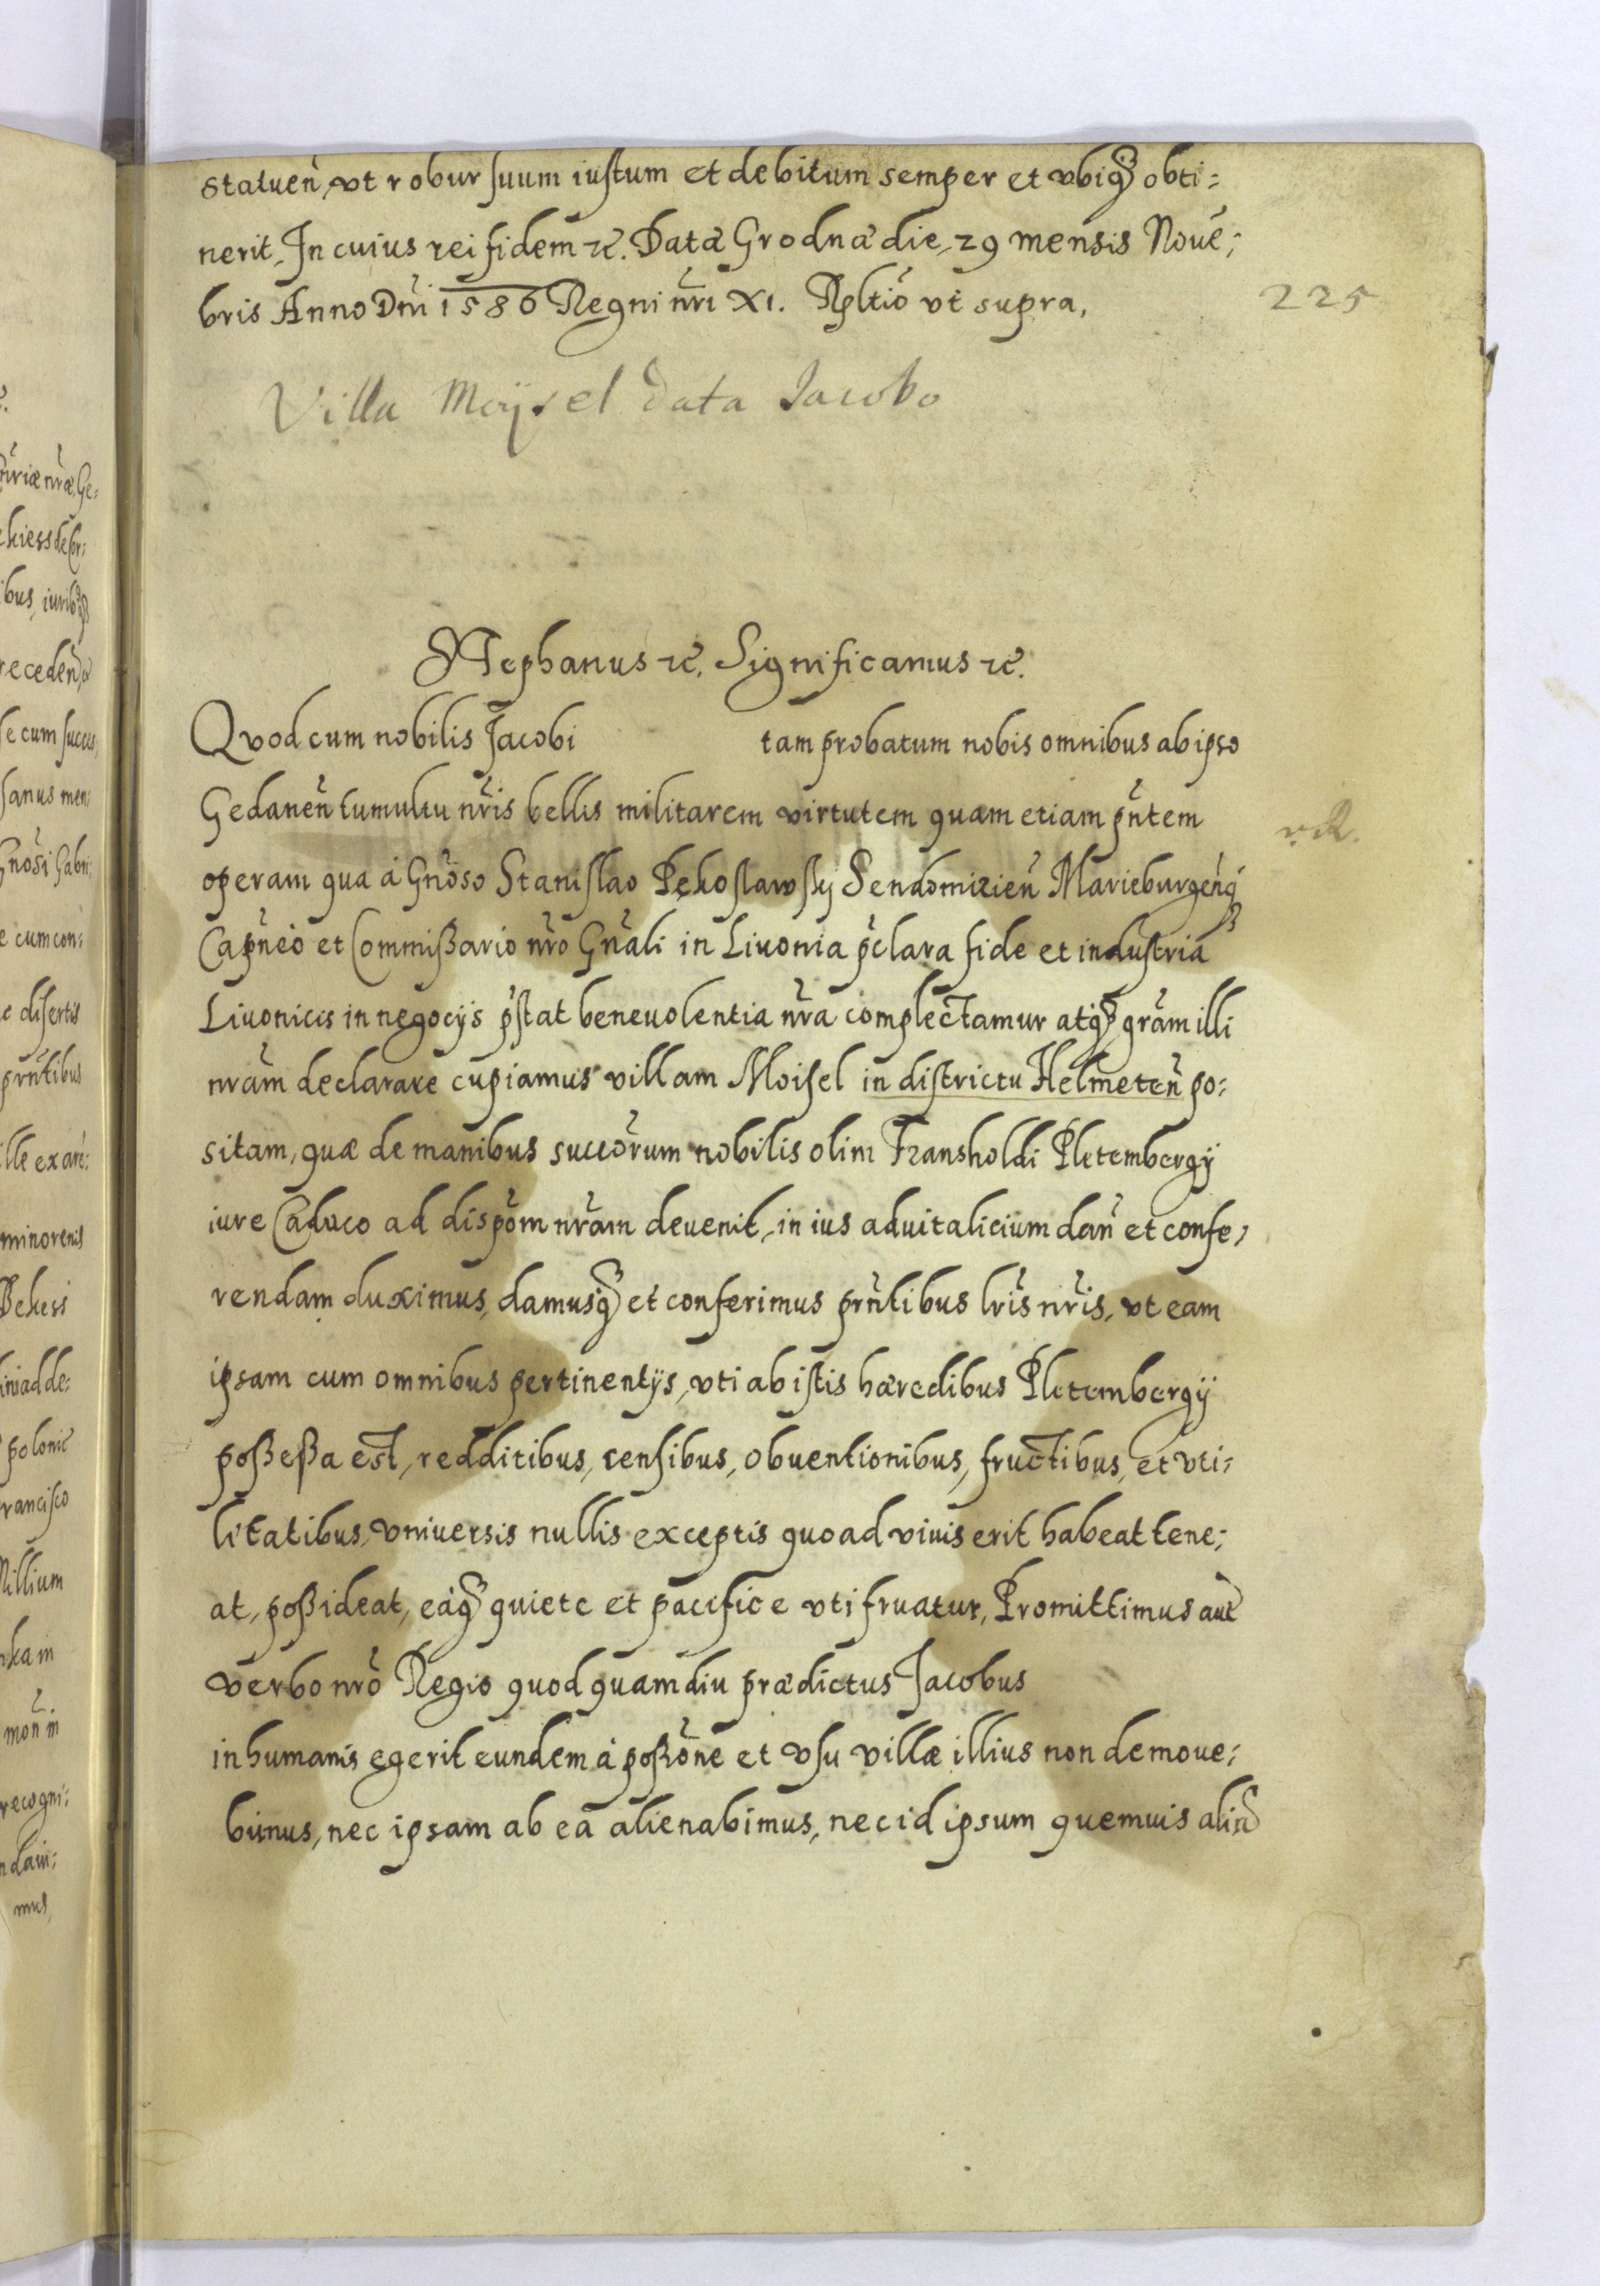 Statuen̄, vt robur suum iustum et debitum semper et vbiq3 obti=
nerit, In cuius rei fidem etc. Datae Grodnae die, 29 mensis Noue͂=
bris Anno Dn̄i 1586 Regni nr̄i XI. Rpltio ut supra.
225
Villa Moysel data Jacobo
Stephanus etc. Significamus etc.
Quod cum nobilis Jacobi tam probatum nobis omnibus ab ipso
Gedanen̄ tumultu nr̄is bellis militarem virtutem quam etiam pn̄tem
operam qua à Gn̄oso Stanislao Pękoslawsky Sendomirien̄ Marieburgen̄q3
Capn̄eo et Commissario nr̄o Gn̄ali in Liuonia p̄clara fide et industria
Liuonicis in negocijs p̄stat beneuolentia nr̄a complectamur atq3 gr̄am illi
nr̄am declarare cupiamus villam Moisel in districtu Helmeten̄ po=
sitam, quae de manibus succōrum nobilis olim Fransholdi Pletembergij
iure Caduco ad dispōm nr̄am deuenit, in ius aduitalicium dan̄ et confe=
rendam duximus, damusq3 et conferimus prn̄tibus lr̄is nr̄is, vt eam
ipsam cum omnibus pertinentijs, vti ab istis haeredibus Pletembergij
possessa est, redditibus, censibus, obuentionibus, fructibus, et vti=
litatibus, vniuersis nullis exceptis quoad viuis erit habeat tene=
at, possideat, eaq3 quiete et pacifice vti fruatur, Promittimus aut̄
verbo nr̄o Regio quod quamdiu praedictus Jacobus
in humanis egerit eundem à possōne et vsu villae illius non demoue=
bimus, nec ipsam ab ea alienabimus, nec id ipsum quemuis